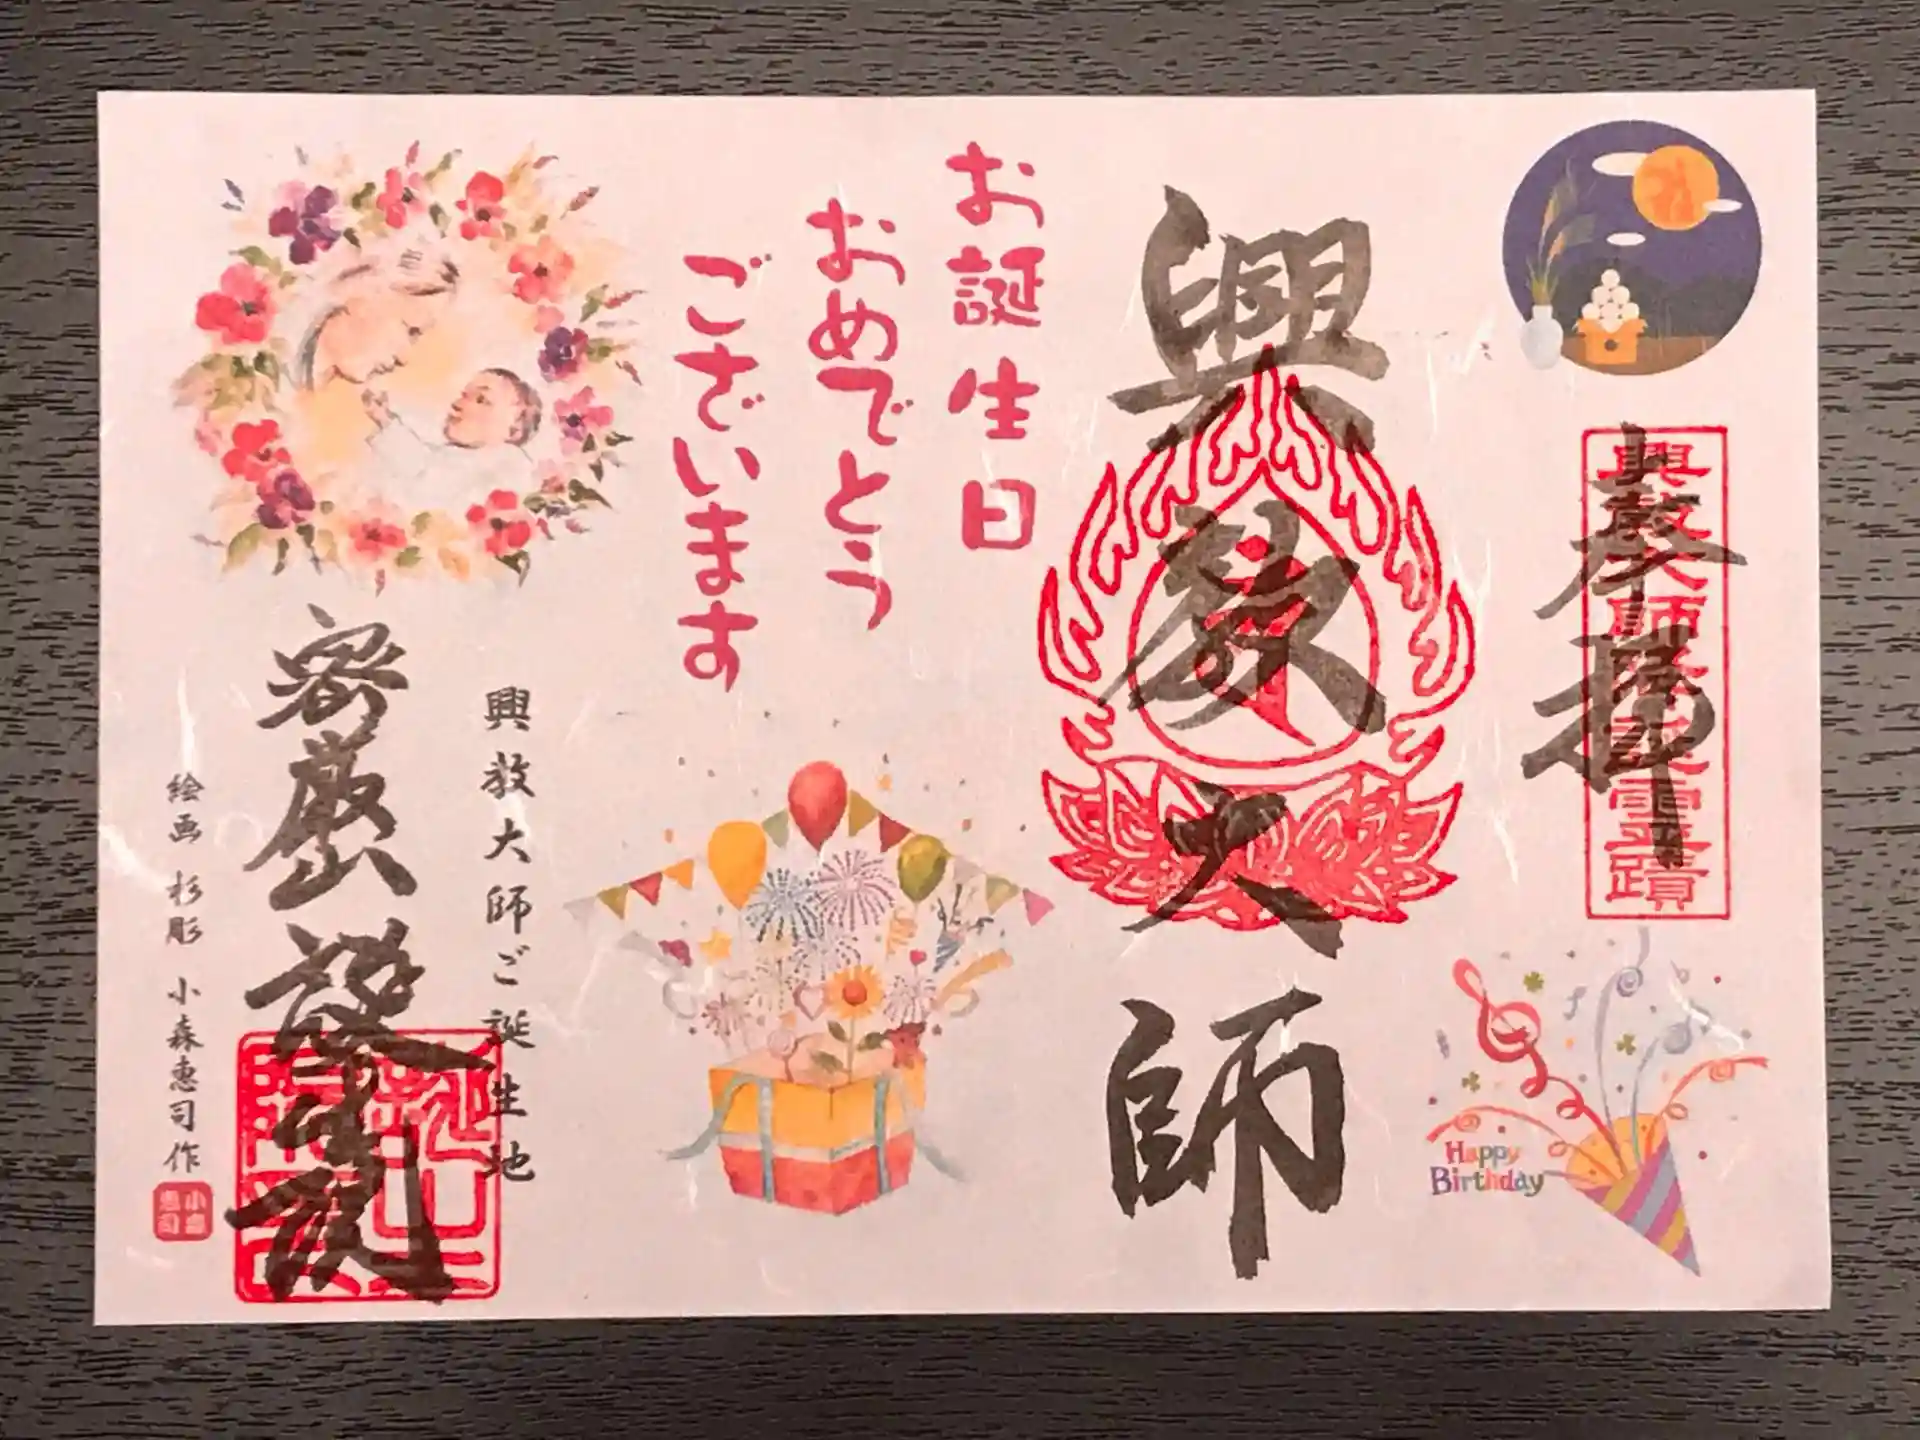 奉拝
興教大師降誕霊蹟
興教大師
お誕生日
おめでとう
ございます
Happy
Birthday
興教大師ご誕生地
密厳山誕生院
絵画 杉彫 小森惠司作